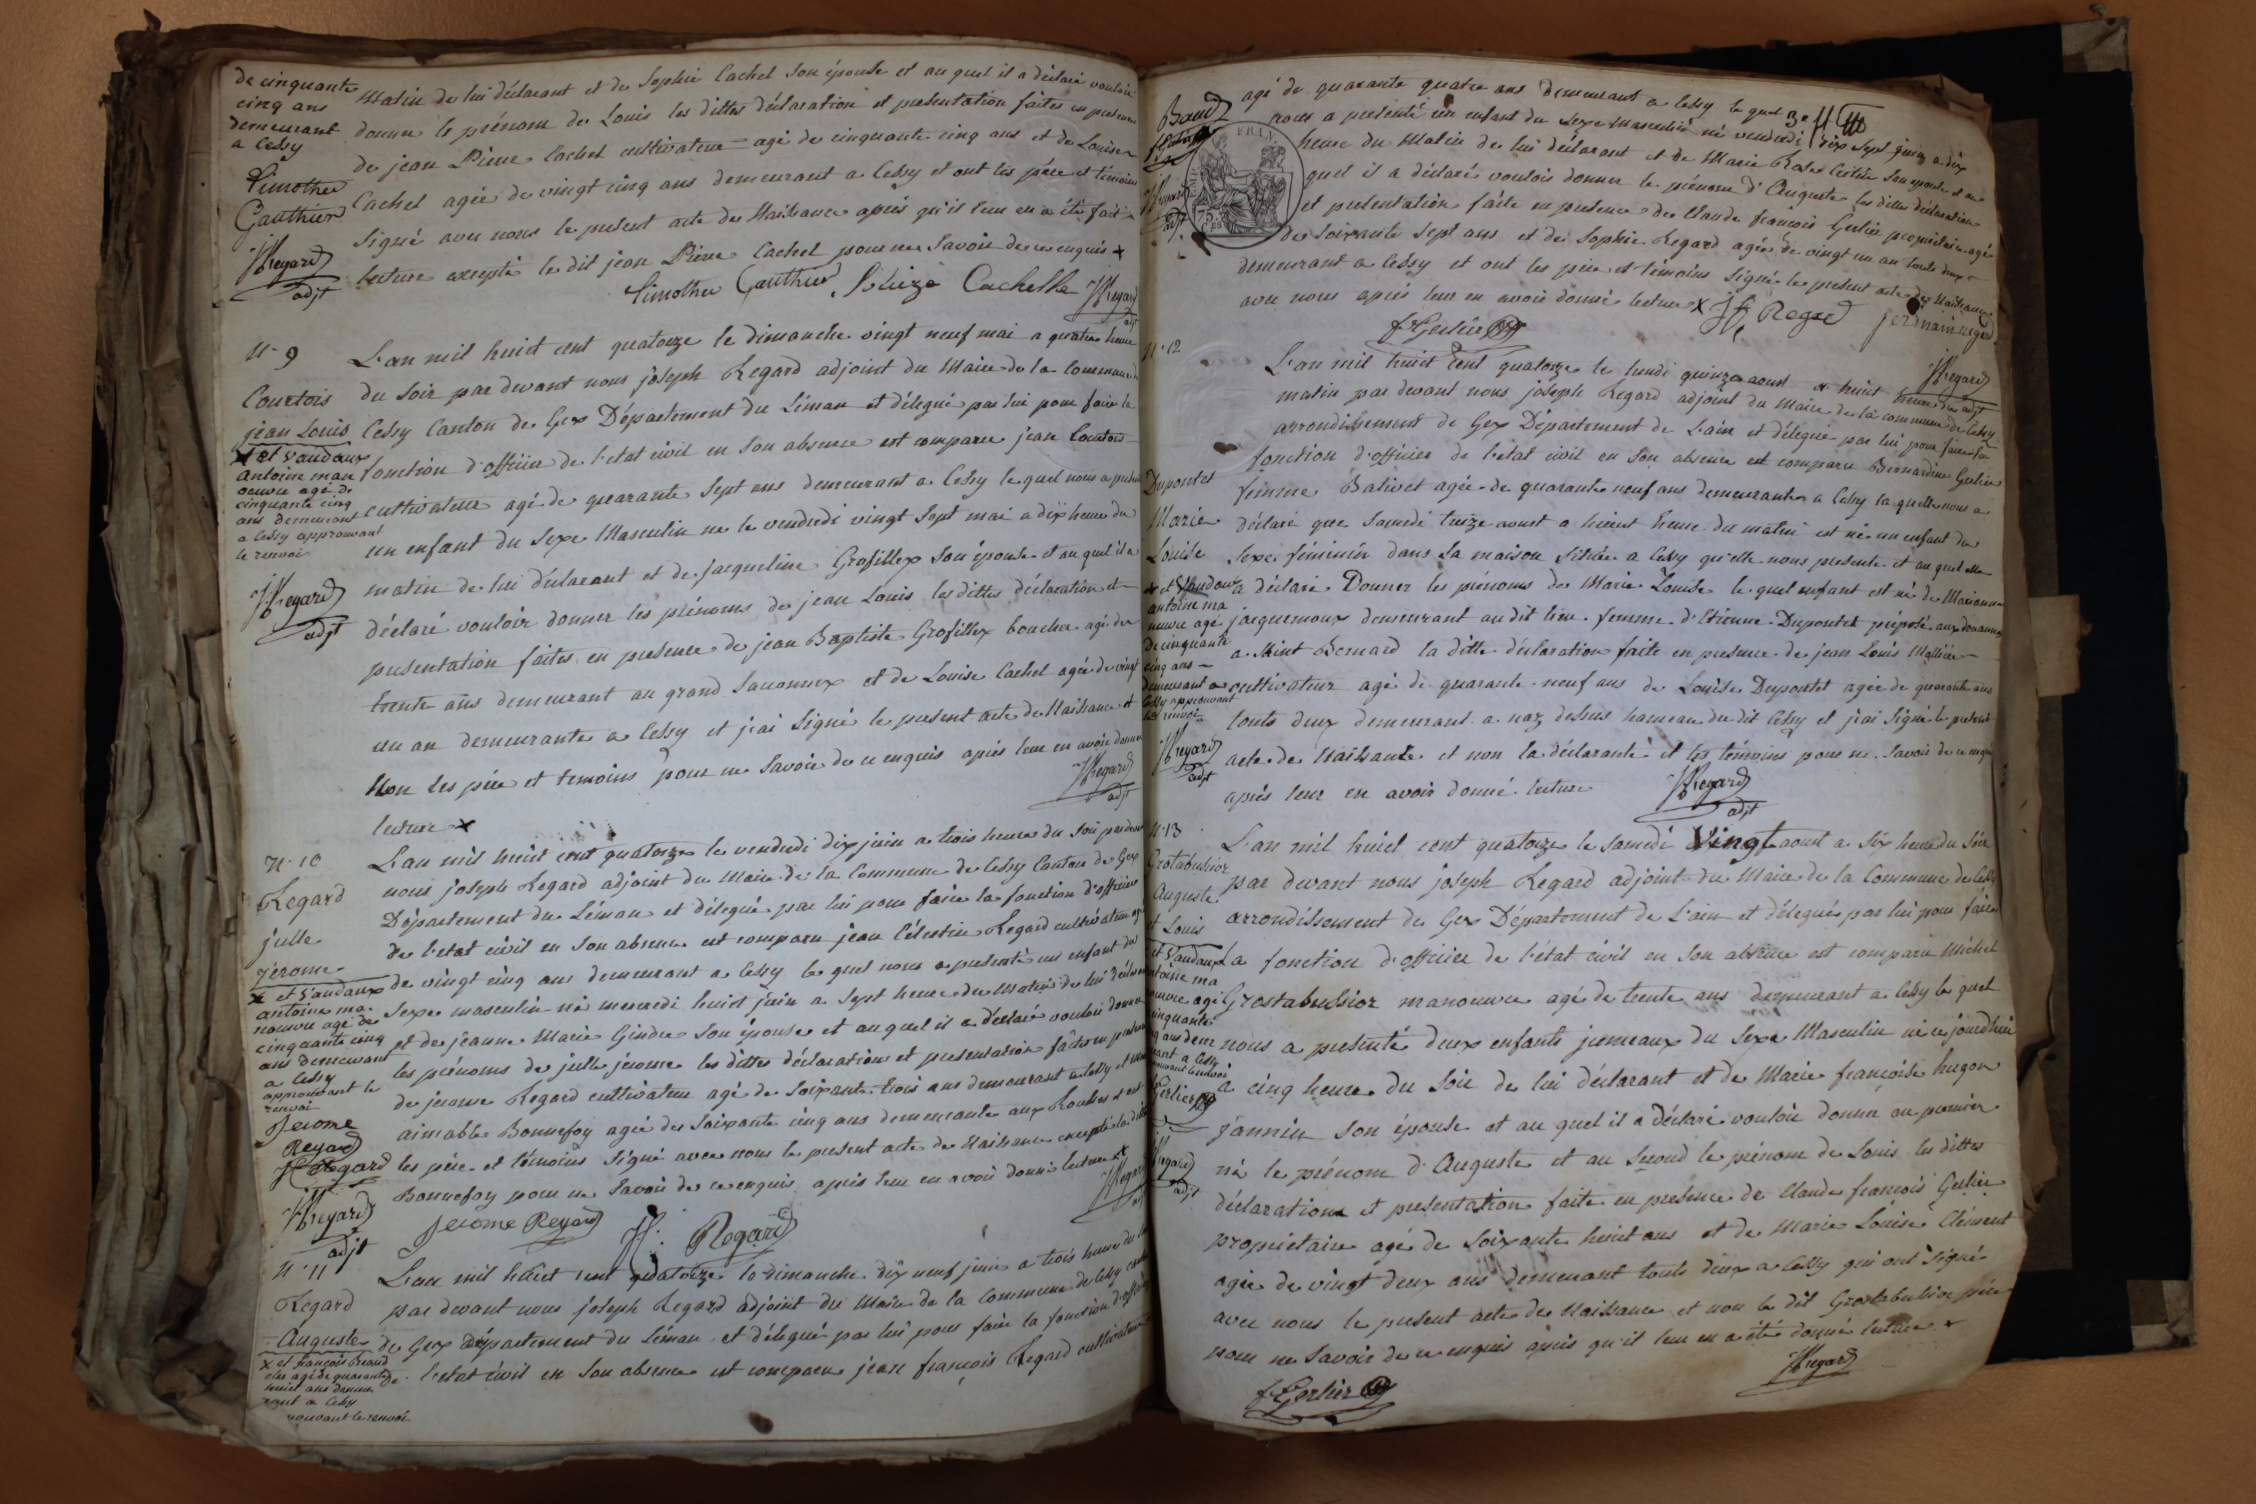 de cinquante
cinq ans
demeurant
a Cessy
Timothee
Gauthier
JRegard
adjt
Matin de lui déclarant et de Sophie Cachet son épouse et au quel il a déclaré vouloir
donner le prénom de Louis les dittes déclaration et presentation faites en presence
de jean Pierre Cachet cultivateur agé de cinquante cinq ans et de Louise
Cachet agée de vingt cinq ans demeurant a Cessy et ont les père et témoins
signé avec nous le present acte de Naissance après qu'il leur en a été fait
lecture excepté le dit jean Pierre Cachet pour ne savoir de ce enquis x
Timothee Gauthier Cachet JRegard
adjt
N. 9
Courtois
jean Louis
x et vaudaux
antoine man
oeuvre agé de
cinquante cinq
ans demeurant
a Cessy approuvant
le renvoi
JRegard
adjt
L'an mil huit cent quatorze le dimanche vingt neuf mai a quatre heure
du soir par devant nous joseph Regard adjoint du Maire de la Commune de
Cessy Canton de Gex Département du Léman et délegué par lui pour faire la
fonction d'officier de l'etat civil en son absence est comparu jean Courtois
cultivateur agé de quarante sept ans demeurant a Cessy le quel nous a presenté
un enfant du sexe Masculin ne le vendredi vingt sept mai a dix heure du
matin de lui déclarant et de jacqueline Grosfillex son épouse et au quel il a
déclaré vouloir donner les prénoms de jean Louis les dittes déclaration et
presentation faites en presence de jean Baptiste Grosfillex boucher agé de
trente ans demeurant au grand Sauonnex et de Louise Cachet agée de vingt
un an demeurante a Cessy et j'ai signé le present acte de Naissance et
Non les père et temoins pour ne savoir de ce enquis après leur en avoir donné
lecture x
JRegard
adjt
N. 10
Regard
julle
jérome
x et vaudaux
antoine ma
nouvre agé de
cinquante cinq
ans demeurant
a Cessy
approuvant le
renvoi
Jerome
Regard
Regard
JRegard
adjt
L'an mil huit cent quatorze le vendredi dix juin a trois heure du soir par devant
nous joseph Regard adjoint du Maire de la Commune de Cessy Canton de Gex
Département du Léman et délegué par lui pour faire la fonction d'officier
de l'etat civil en son absence est comparu jean Célestin Regard cultivateur agé
de vingt cinq ans demeurant a Cessy le quel nous a presenté un enfant du
sexe masculin né mercredi huit juin a sept heure du Matin de lui déclarant
et de jeanne Marie Gindre son épouse et au quel il a déclaré vouloir donner
les prénoms de julle jérome les dittes déclaration et presentation faites en presence
de jerome Regard cultivateur agé de soixante trois ans demeurant a Cessy et
aimable Bonnefoy agée de soixante cinq ans demeurante aux Rousses et ont
les père et témoins signé avec nous le present acte de Naissance excepté la ditte
Bonnefoy pour ne savoir de ce enquis après leur en avoir donné lecture x
Jerome Regard Regard
JRegard
N. 11
Regard
Auguste
x et françois
agé de quarante
huit ans demeu
rant a Cessy
le renvoi
L'an mil huit cent quatorze le dimanche dix neuf juin a trois heure du
par devant nous joseph Regard adjoint du Maire de la Commune de Cessy canton
de Gex département du Léman et délegué par lui pour faire la fonction d'officier
de l'etat civil en son absence est comparu jean françois Regard cultivateur
agé de quarante quatre ans demeurant a Cessy le quel
nous a presenté un enfant du sexe Masculin né vendredi dix sept juin a dix
heure du Matin de lui déclarant et de Marie Rose son epouse et au
quel il a déclaré vouloir donner le prénom d'Auguste les dittes déclaration
et presentation faite en presence de Claude françois Gerlier propriétaire agé
de soixante sept ans et de Sophie Regard agée de vingt un an touts deux
demeurant a Cessy et ont les père et témoins signé le present acte de Naissance
avec nous après leur en avoir donné lecture x
FRAN
75
fGerlier
Regard
JRegard
adjt
N. 12
Dupontet
Marie
Louise
x et Vaudaux
antoine ma
neuvre agé
de cinquante
cinq ans
demeurant a
Cessy approuvant
le renvoi
JRegard
adjt
L'an mil huit cent quatorze le lundi quinze aoust a huit heure du
matin par devant nous joseph Regard adjoint du Maire de la commune de Cessy
arrondissement de Gex Département de L'ain et délegué par lui pour faire la
fonction d'officier de l'etat civil en son absence est comparu Bernardine Gerlier
femme Balivet agée de quarante neuf ans demeurante a Cessy la quelle nous a
déclaré que samedi treize aoust a huit heure du matin est né un enfant du
sexe féminin dans sa maison située a Cessy qu'elle nous presente et au quel elle
a déclaré Donner les prénoms de Marie Louise le quel enfant est né de Marianne
jacquemoux demeurant au dit lieu femme d'Etienne Dupontet préposé aux douannes
a Saint Bernard la ditte déclaration faite en presence de jean Louis
cultivateur agé de quarante neuf ans de Louise Dupontet agée de quarante ans
touts deux demeurant a naz dessus hameau du dit Cessy et j'ai signé le present
acte de Naissance et non la déclarante et les témoins pour ne savoir de ce enquis
après leur en avoir donné lecture
JRegard
adjt
N. 13
Grostabussior
Auguste
et Louis
et Vaudaux
antoine ma
nouvre agé
cinquante
cinq ans demeu
rant a Cessy
Gerlier
JRegard
adjt
L'an mil huit cent quatorze le samedi Vingt aoust a six heure du soir
par devant nous joseph Regard adjoint du Maire de la Commune de Cessy
arrondissement de Gex Département de L'ain et délegué par lui pour faire
La fonction d'officier de l'état civil en son absence est comparu Michel
Grostabussior manouvre agé de trente ans demeurant a Cessy le quel
nous a presenté deux enfants jumeaux du sexe Masculin né ce jourd'hui
a cinq heure du soir de lui déclarant et de Marie françoise hugon
jannin son épouse et au quel il a déclaré vouloir donner au premier
né le prénom d'Auguste et au second le prénom de Louis les dittes
déclaration et presentation faite en presence de Claude françois Gerlier
propriétaire agé de soixante huit ans et de Marie Louise Clément
agée de vingt deux ans demeurant touts deux a Cessy qui ont signé
avec nous le present acte de Naissance et non le dit Grostabussior père
pour ne savoir de ce enquis après qu'il leur en a été donné lecture x
fGerlier
JRegard